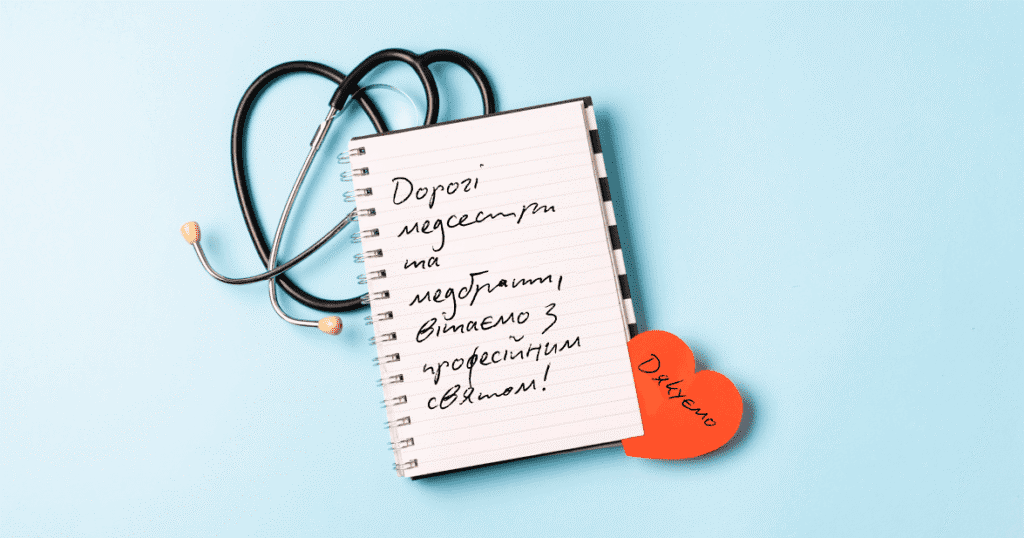 Дорогі
медсестри
та
медбрати,
вітаємо з
професійним
святом!
Дякуємо